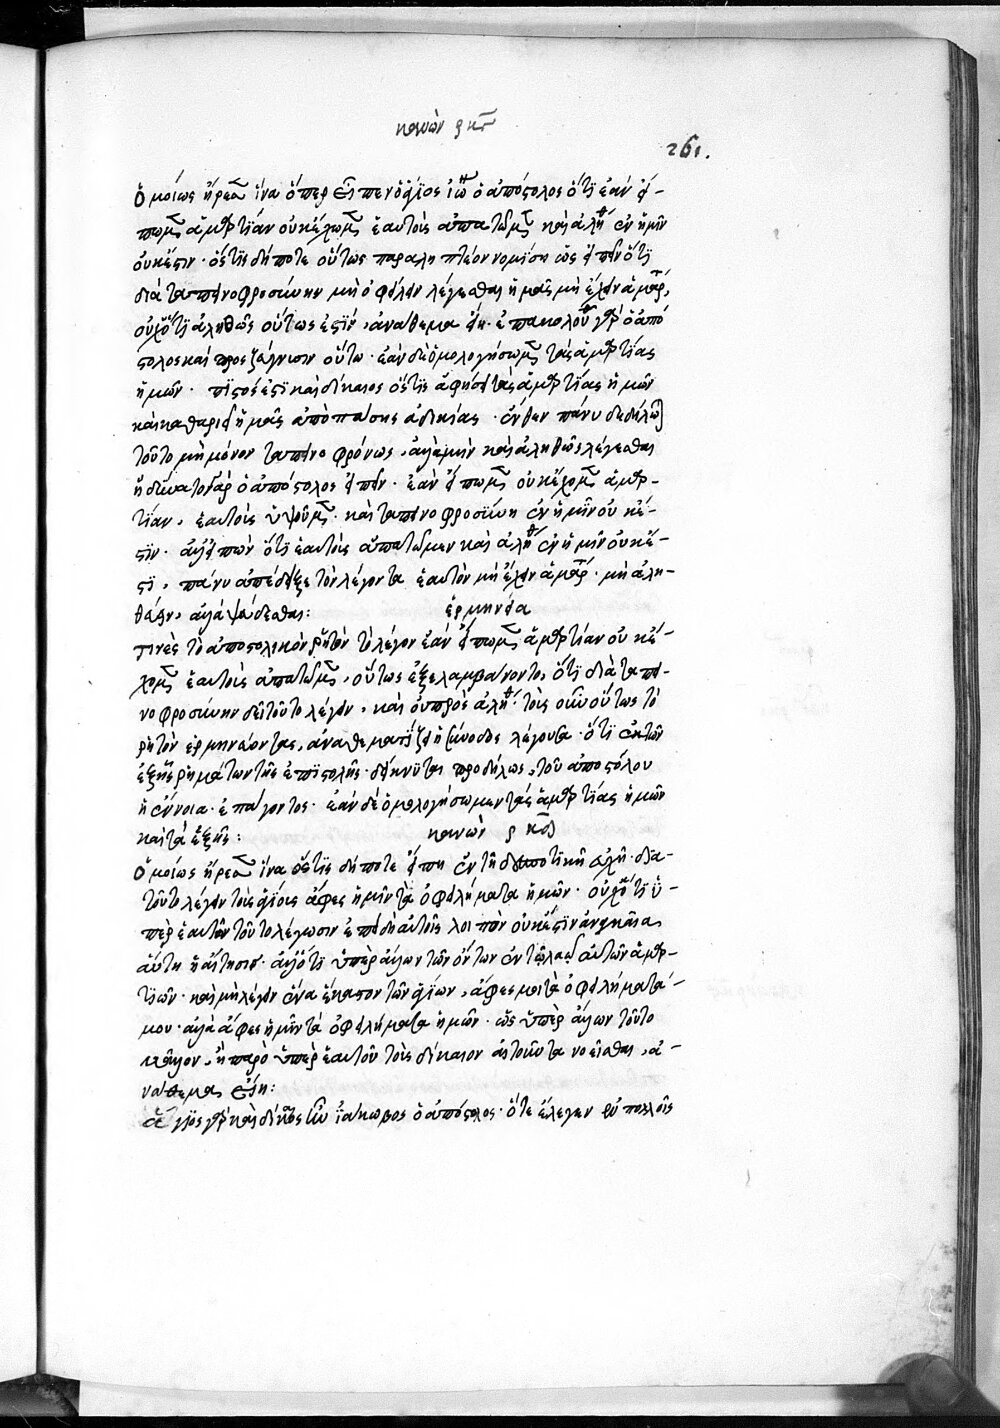 κανὼν ρκγ
261.
Ὁμοίως ἤρεσεν ἵνα ὅπερ εἶπεν ὁ ἅγιος ἰω ὁ ἀπόστολος ὅτι ἐὰν εἴ-
πωμεν ἁμαρτίαν οὐκ ἔχωμεν ἑαυτοὺς ἀπατῶμεν καὶ ἀλήθ ἐν ἡμῖν
οὐκ ἔστιν· ὅστις δήποτε οὕτως παραληπτέον νομίση ὡς εἰπεῖν ὅτι
διὰ ταπεινοφροσύνην μὴ ὀφείλειν λέγεσθαι ἡμᾶς μὴ ἔχειν ἁμαρ,
οὐχ ὅτι ἀληθῶς οὕτως ἐστίν, ἀνάθεμα εἴη· ἐπακολουθ γὰρ ὁ ἀπό
στολος καὶ προσζεύγνισιν οὕτω· ἐὰν δὲ ὁμολογήσωμεν τὰς ἁμαρτίας
ἡμῶν· πιστός ἐστι καὶ δίκαιος ὅστις ἀφήσει τὰς ἁμαρτίας ἡμῶν
καὶ καθαρίσει ἡμᾶς ἀπὸ πάσης ἀδικίας· ἔνθεν πάνυ δεδήλω
τοῦτο μὴ μόνον ταπεινοφρόνως, ἀλλὰ μὴν καὶ ἀληθῶς λέγεσθαι
ἠδύνατο γὰρ ὁ ἀπόστολος εἰπεῖν· ἐὰν εἴπωμεν οὐκ ἔχομεν ἁμαρ-
τίαν, ἑαυτοὺς ὑψοῦμεν· καὶ ταπεινοφροσύνη ἐν ἡμῖν οὐκ ἔ-
στιν· ἀλλ' εἰπὼν ὅτι ἑαυτοὺς ἀπατῶμεν καὶ ἀλήθ ἐν ἡμῖν οὐκ ἔ-
στι, πάνυ ἀπέδειξε τὸν λέγοντα ἑαυτὸν μὴ ἔχειν ἁμαρ· μὴ ἀλη-
θεύειν, ἀλλὰ ψεύδεσθαι:
ἑρμηνεία
τινὲς τὸ ἀποστολικὸν ῥητὸν τὸ λέγον ἐὰν εἴπωμεν ἁμαρτίαν οὐκ ἔ-
χομεν ἑαυτοὺς ἀπατῶμεν, οὕτως ἐξελαμβάνοντο, ὅτι διὰ ταπει-
νοφροσύνην δεῖ τοῦτο λέγειν, καὶ οὐ πρὸς ἀλήθ· τοὺς οὖν οὕτως τὸ
ῥητὸν ἑρμηνεύοντας, ἀναθεματίζει ἡ σύνοδος λέγουσα· ὅτι ἐκ τῶν
ἑξῆς ῥημάτων τῆς ἐπιστολῆς· δείκνυται προδήλως, τοῦ ἀποστόλου
ἡ ἔννοια· ἐπάγοντος· ἐὰν δὲ ὁμολογήσωμεν τὰς ἁμαρτίας ἡμῶν
καὶ τὰ ἑξῆς:
κανὼν ρκδ
Ὁμοίως ἤρεσεν ἵνα ὅστις δήποτε εἴπη ἐν τῆ δεσποτικῆ εὐχῆ· διὰ
τοῦτο λέγειν τοὺς ἁγίους ἄφες ἡμῖν τὰ ὀφειλήματα ἡμῶν· οὐχ ὅτι ὑ-
πὲρ ἑαυτῶν τοῦτο λέγωσιν ἐπειδὴ αὐτοῖς λοιπὸν οὐκ ἔστιν ἀναγκαία
αὕτη ἡ αἴτησις· ἀλλ' ὅτι ὑπὲρ ἄλλων τῶν ὄντων ἐν τῷ λαῷ αὐτῶν ἁμαρ-
τιῶν· καὶ μὴ λέγειν ἕνα ἕκαστον τῶν ἁγίων, ἄφες μοι τὰ ὀφειλήματά-
μου· ἀλλὰ ἄφες ἡμῖν τὰ ὀφειλήματα ἡμῶν· ὡς ὑπὲρ ἄλλων τοῦτο
μᾶλλον, ἤπερ ὑπὲρ ἑαυτοῦ τοὺς δίκαιον αἰτοῦντα νοεῖσθαι, ἀ-
νάθεμα εἴη:
ἅγιος γὰρ καὶ δίκαιος ἦν ἰάκωβος ὁ ἀπόστολος· ὅτε ἔλεγεν ἐν πολλοῖς